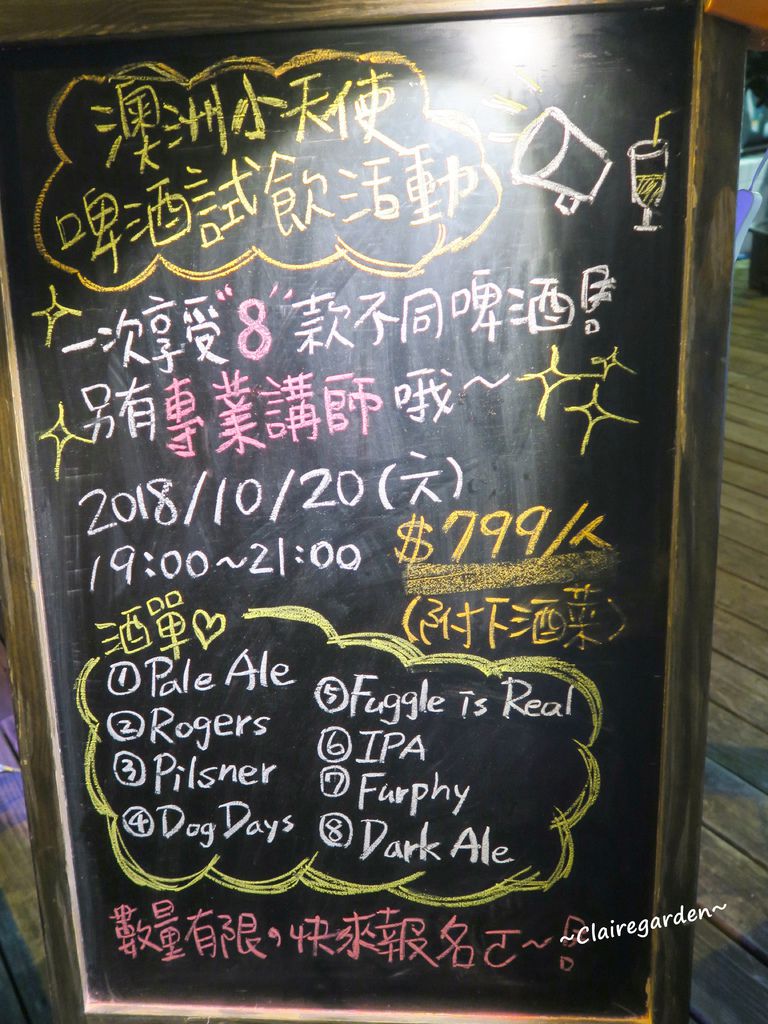 澳洲小天使
啤酒試飲活動
一次享受"8"款不同啤酒!
另有專業講師哦～
2018/10/20(六)
19:00~21:00
$799/人
(附下酒菜)
酒單♡
①Pale Ale
②Rogers
③Pilsner
④Dog Days
⑤Fuggle is Real
⑥IPA
⑦Furphy
⑧Dark Ale
數量有限,快來報名ㄛ~!
~Clairegarden~